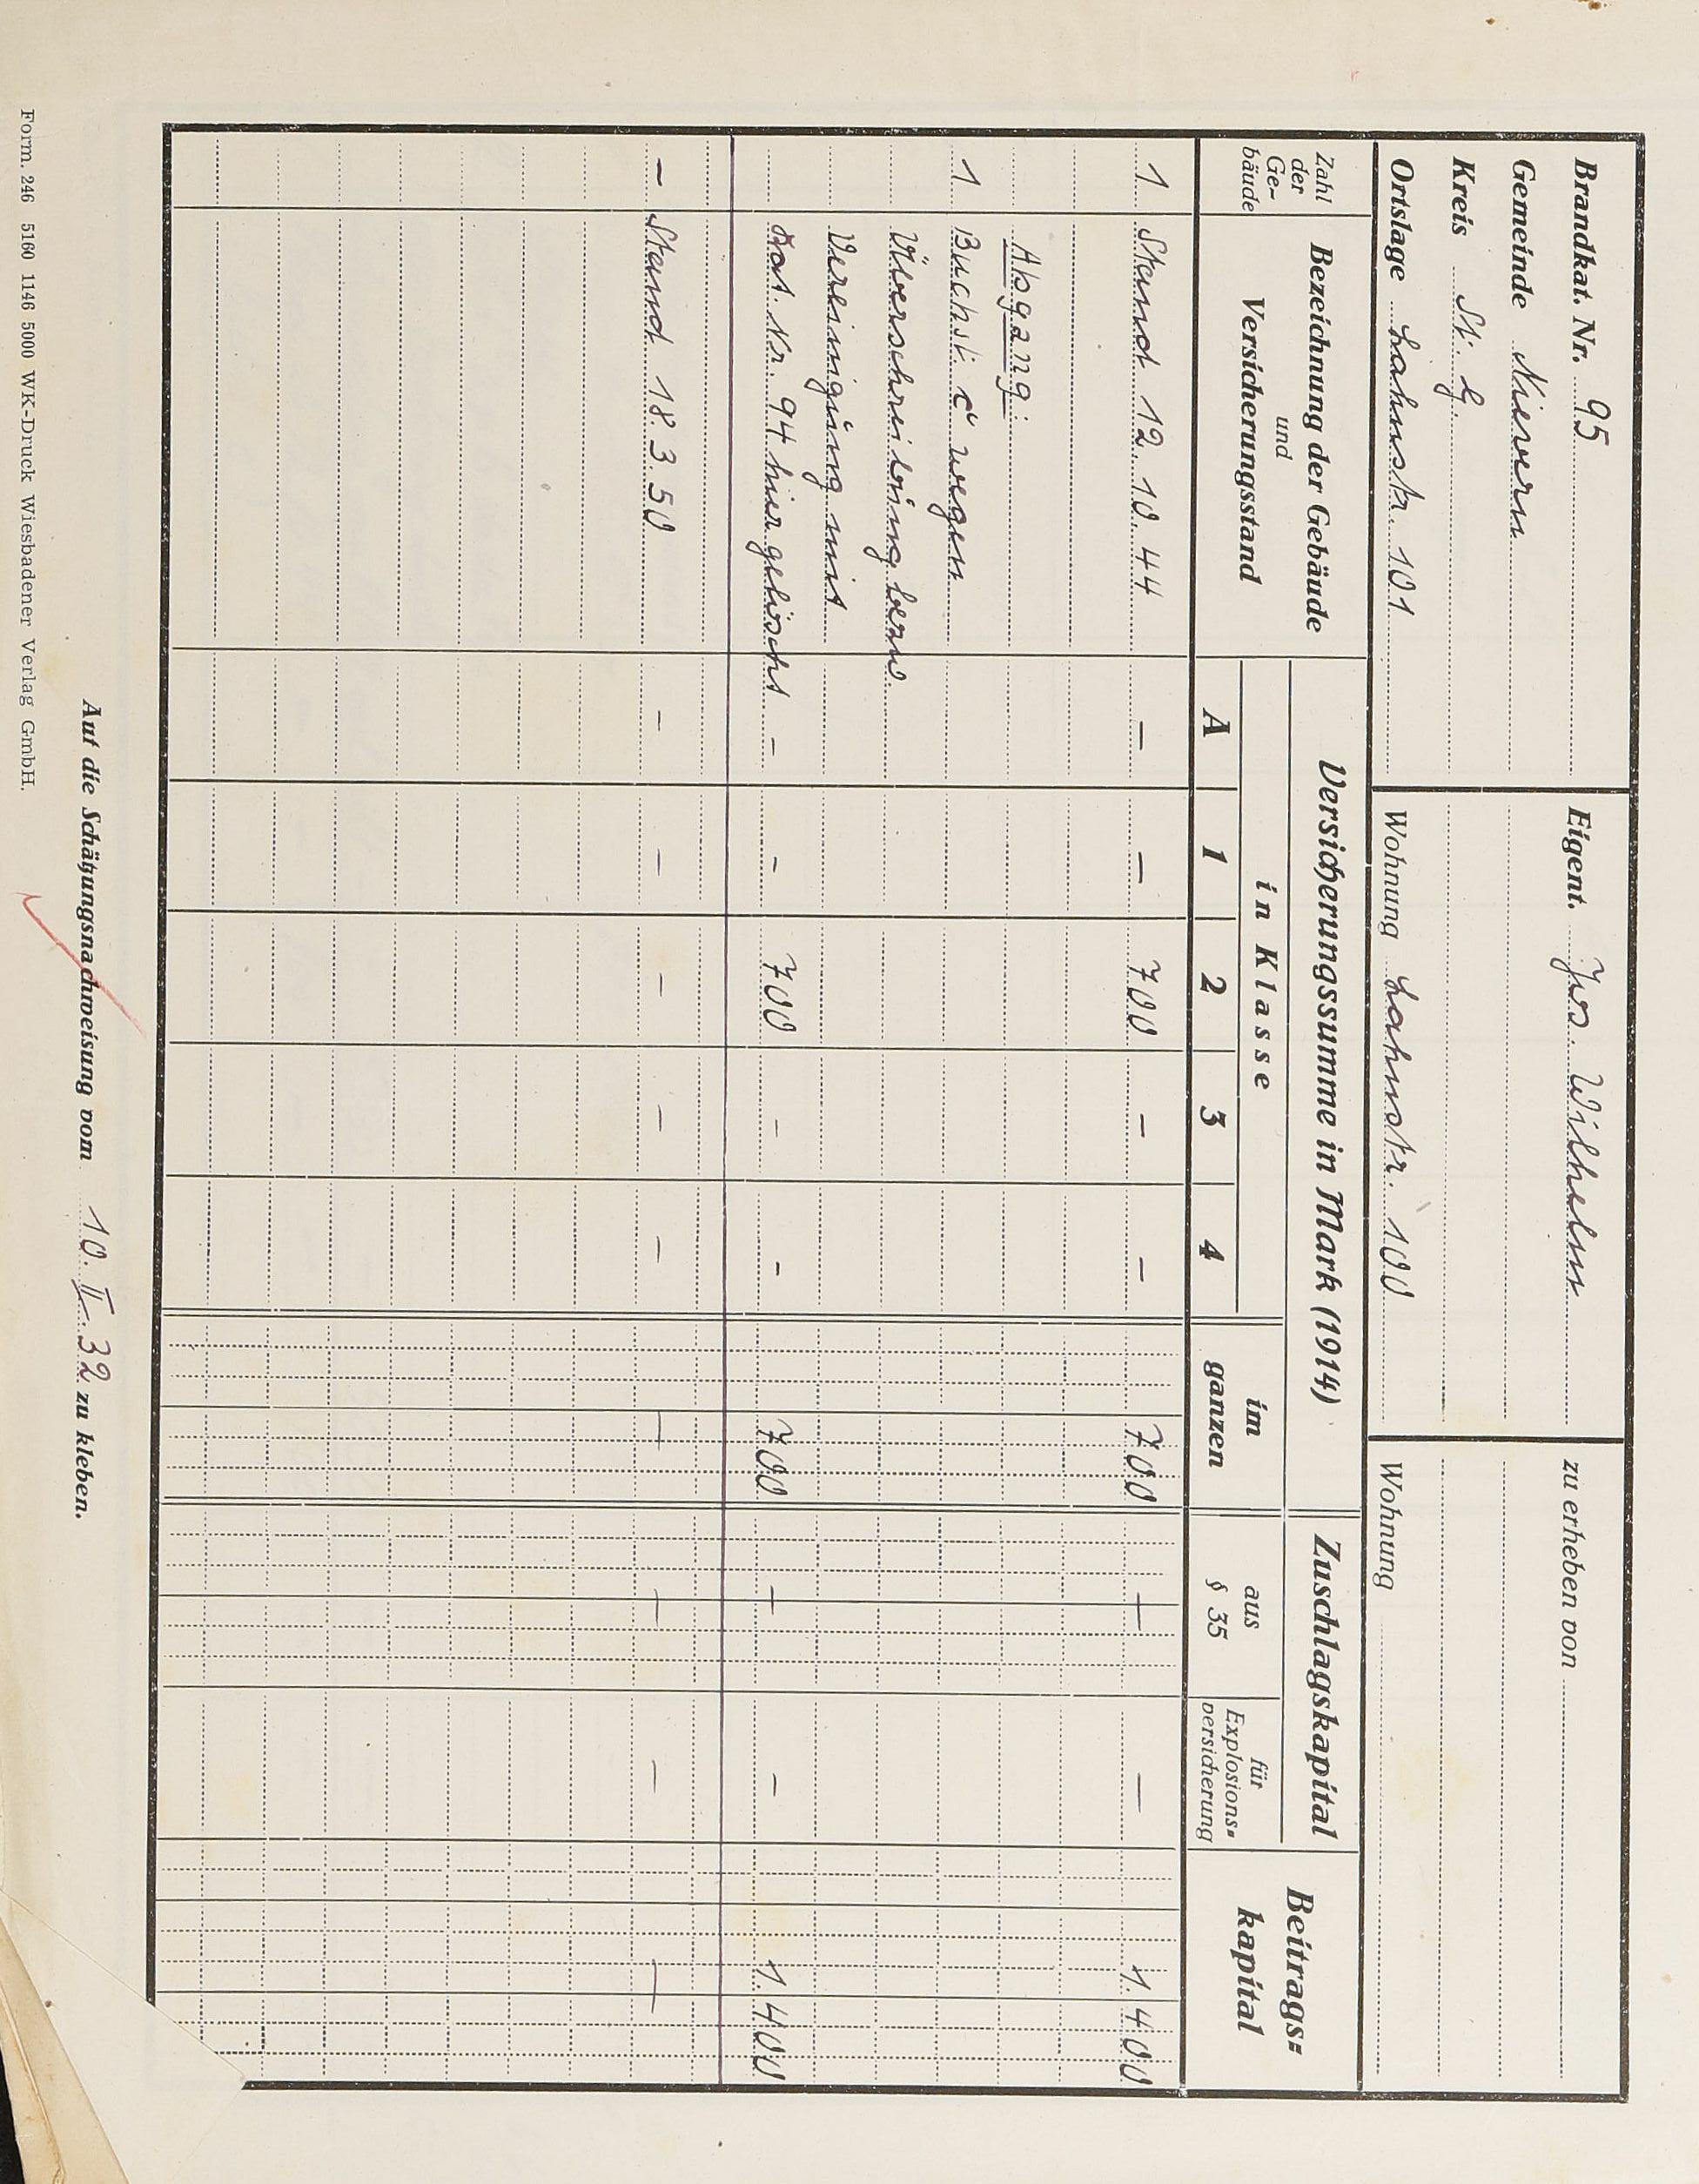 Brandkat. Nr. 95
Gemeinde Nievern
Kreis St. G.
Ortslage Lahnstr. 101
Eigent. Jos. Wilhelm
Wohnung Lahnstr. 100
zu erheben von
Wohnung
Zahl der Ge-bäude
Bezeichnung der Gebäude
und
Versicherungsstand
Versicherungssumme in Mark (1914)
in Klasse
A 1 2 3 4
im ganzen
Zuschlagskapital
aus § 35
für Explosions-versicherung
Beitrags-kapital
1 Stand 12. 10. 44 — — 700 — — 700 — — 1.400
Abgang:
1 Buchst. c" wegen
Überschreibung bezw.
Vereinigung mit
Kat. Nr. 94 hier gelöscht — — 700 — — 700 — — 1.400
— Stand 18. 3. 50 — — — — — — — — —
Auf die Schätzungsnachweisung vom 10. II. 32 zu kleben.
Form. 246 5160 1146 5000 WK-Druck Wiesbadener Verlag GmbH.